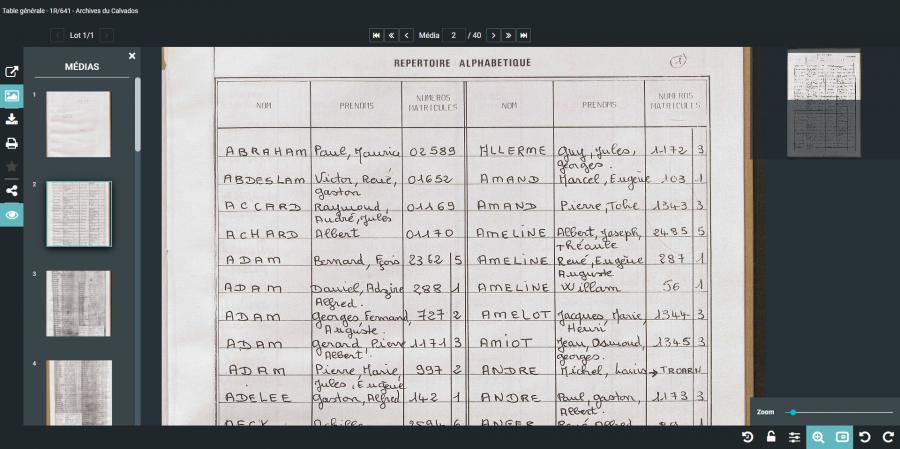 Table générale - 1R/641 - Archives du Calvados
Lot 1/1
Média 2 / 40
MÉDIAS
1
2
3
4
REPERTOIRE ALPHABETIQUE
1
NOM PRENOMS NUMEROS MATRICULES NOM PRENOMS NUMEROS MATRICULES
ABRAHAM Paul, Maurice 02589 ALLERME Guy, Jules, georges. 1172 3
ABDESLAM Victor, René, gaston 01652 AMAND Marcel, Eugène 103 1
ACCARD Raymond, André, Jules 01169 AMAND Pierre, 1343 3
ACHARD Albert 01170 AMELINE Albert, Joseph, 2485 5
ADAM Bernard, Fçois 2362 5 AMELINE René, Eugène Auguste 287 1
ADAM Daniel, Alfred. 288 1 AMELINE Willam 56 1
ADAM Georges Fernand, Auguste. 727 2 AMELOT Jacques, Marie, Henri 1344 3
ADAM gerard, Pierre Albert. 1171 3 AMIOT Jean, georges. 1345 3
ADAM Pierre, Marie, Jules, Eugène 997 2 ANDRE Michel, Louis → TROARN
ADELEE gaston, Alfred 142 1 ANDRE Paul, gaston, Albert. 1173 3
Zoom